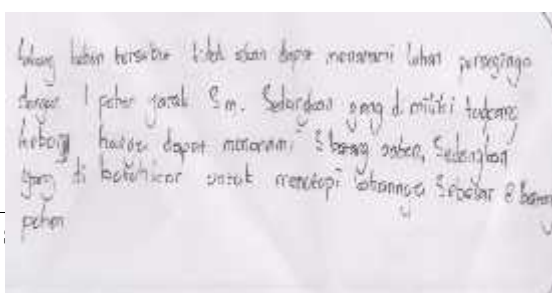 lahan tersebut tidak akan dapat menanami lahan perseginya
dengan 1 pohon jarak 5 m. Sedangkan yang di miliki tukang
kebon hanya dapat menanami 5 batang pohon, Sedangkan
yang di butuhkan untuk menutupi lahannya Sebesar 8 batang
pohon